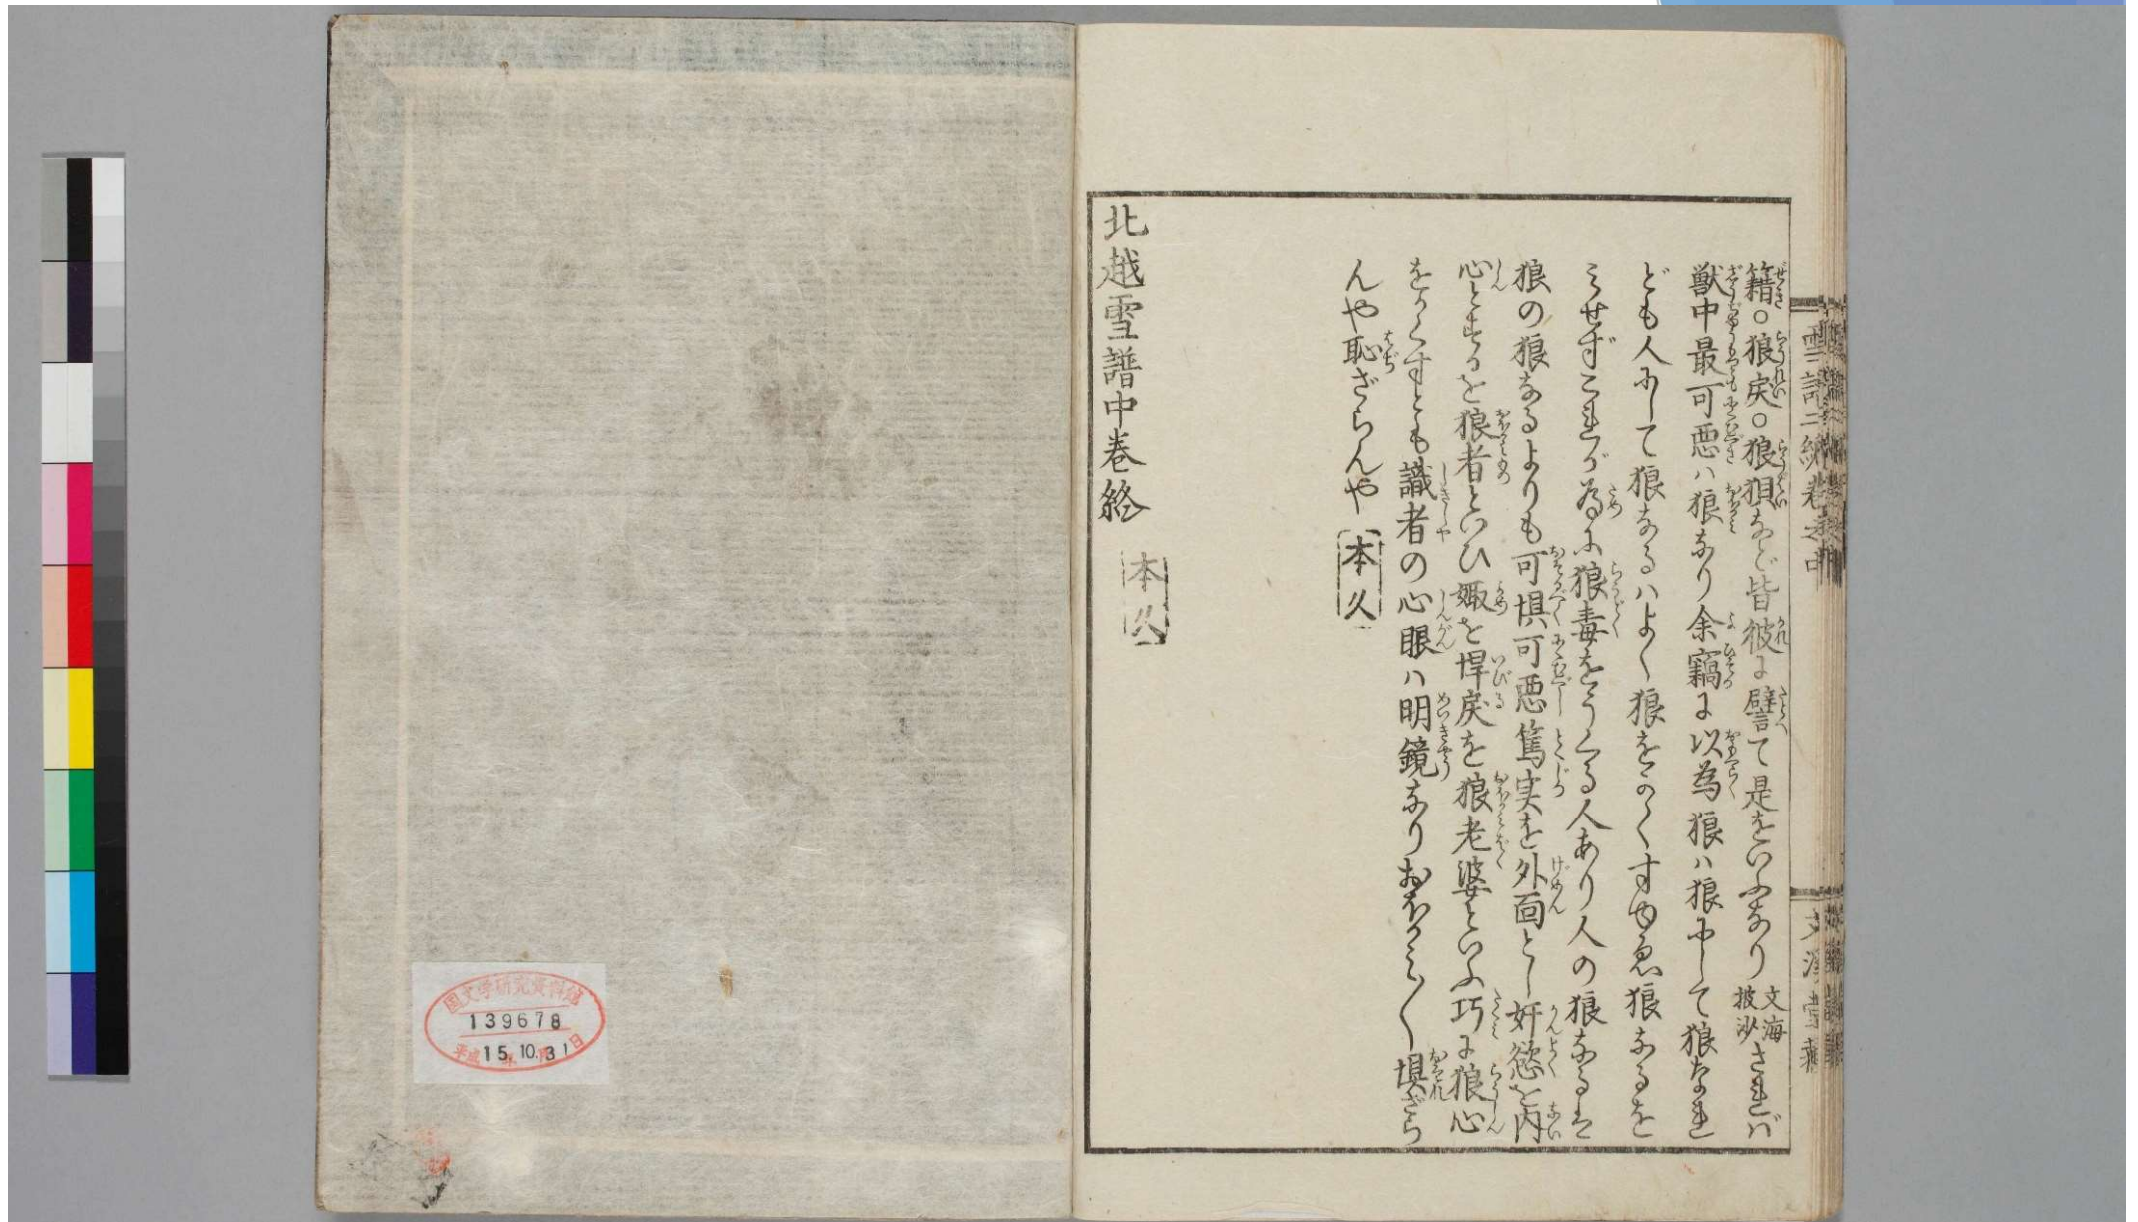 籍○狼戻○狼狽など皆彼に譬て是をいふなり文海披沙さればバ
獣中最可悪ハ狼なり余竊に以為狼ハ狼にして狼なれ
ども人にして狼なるハよく狼をかくすゆゑ狼なるを
みせずこれが為に狼毒をうくる人あり人の狼なるは
狼の狼なるよりも可惧可悪篤実を外面とし奸慾を内
心とするを狼者といひ娵を悍戻を狼老婆といふ巧に狼心
をかくすとも識者の心眼ハ明鏡なりおほかみ〳〵惧ざら
んや恥ざらんや
本久
北越雪譜中巻終
本久
国文学研究資料館
139678
平成15.10.31日